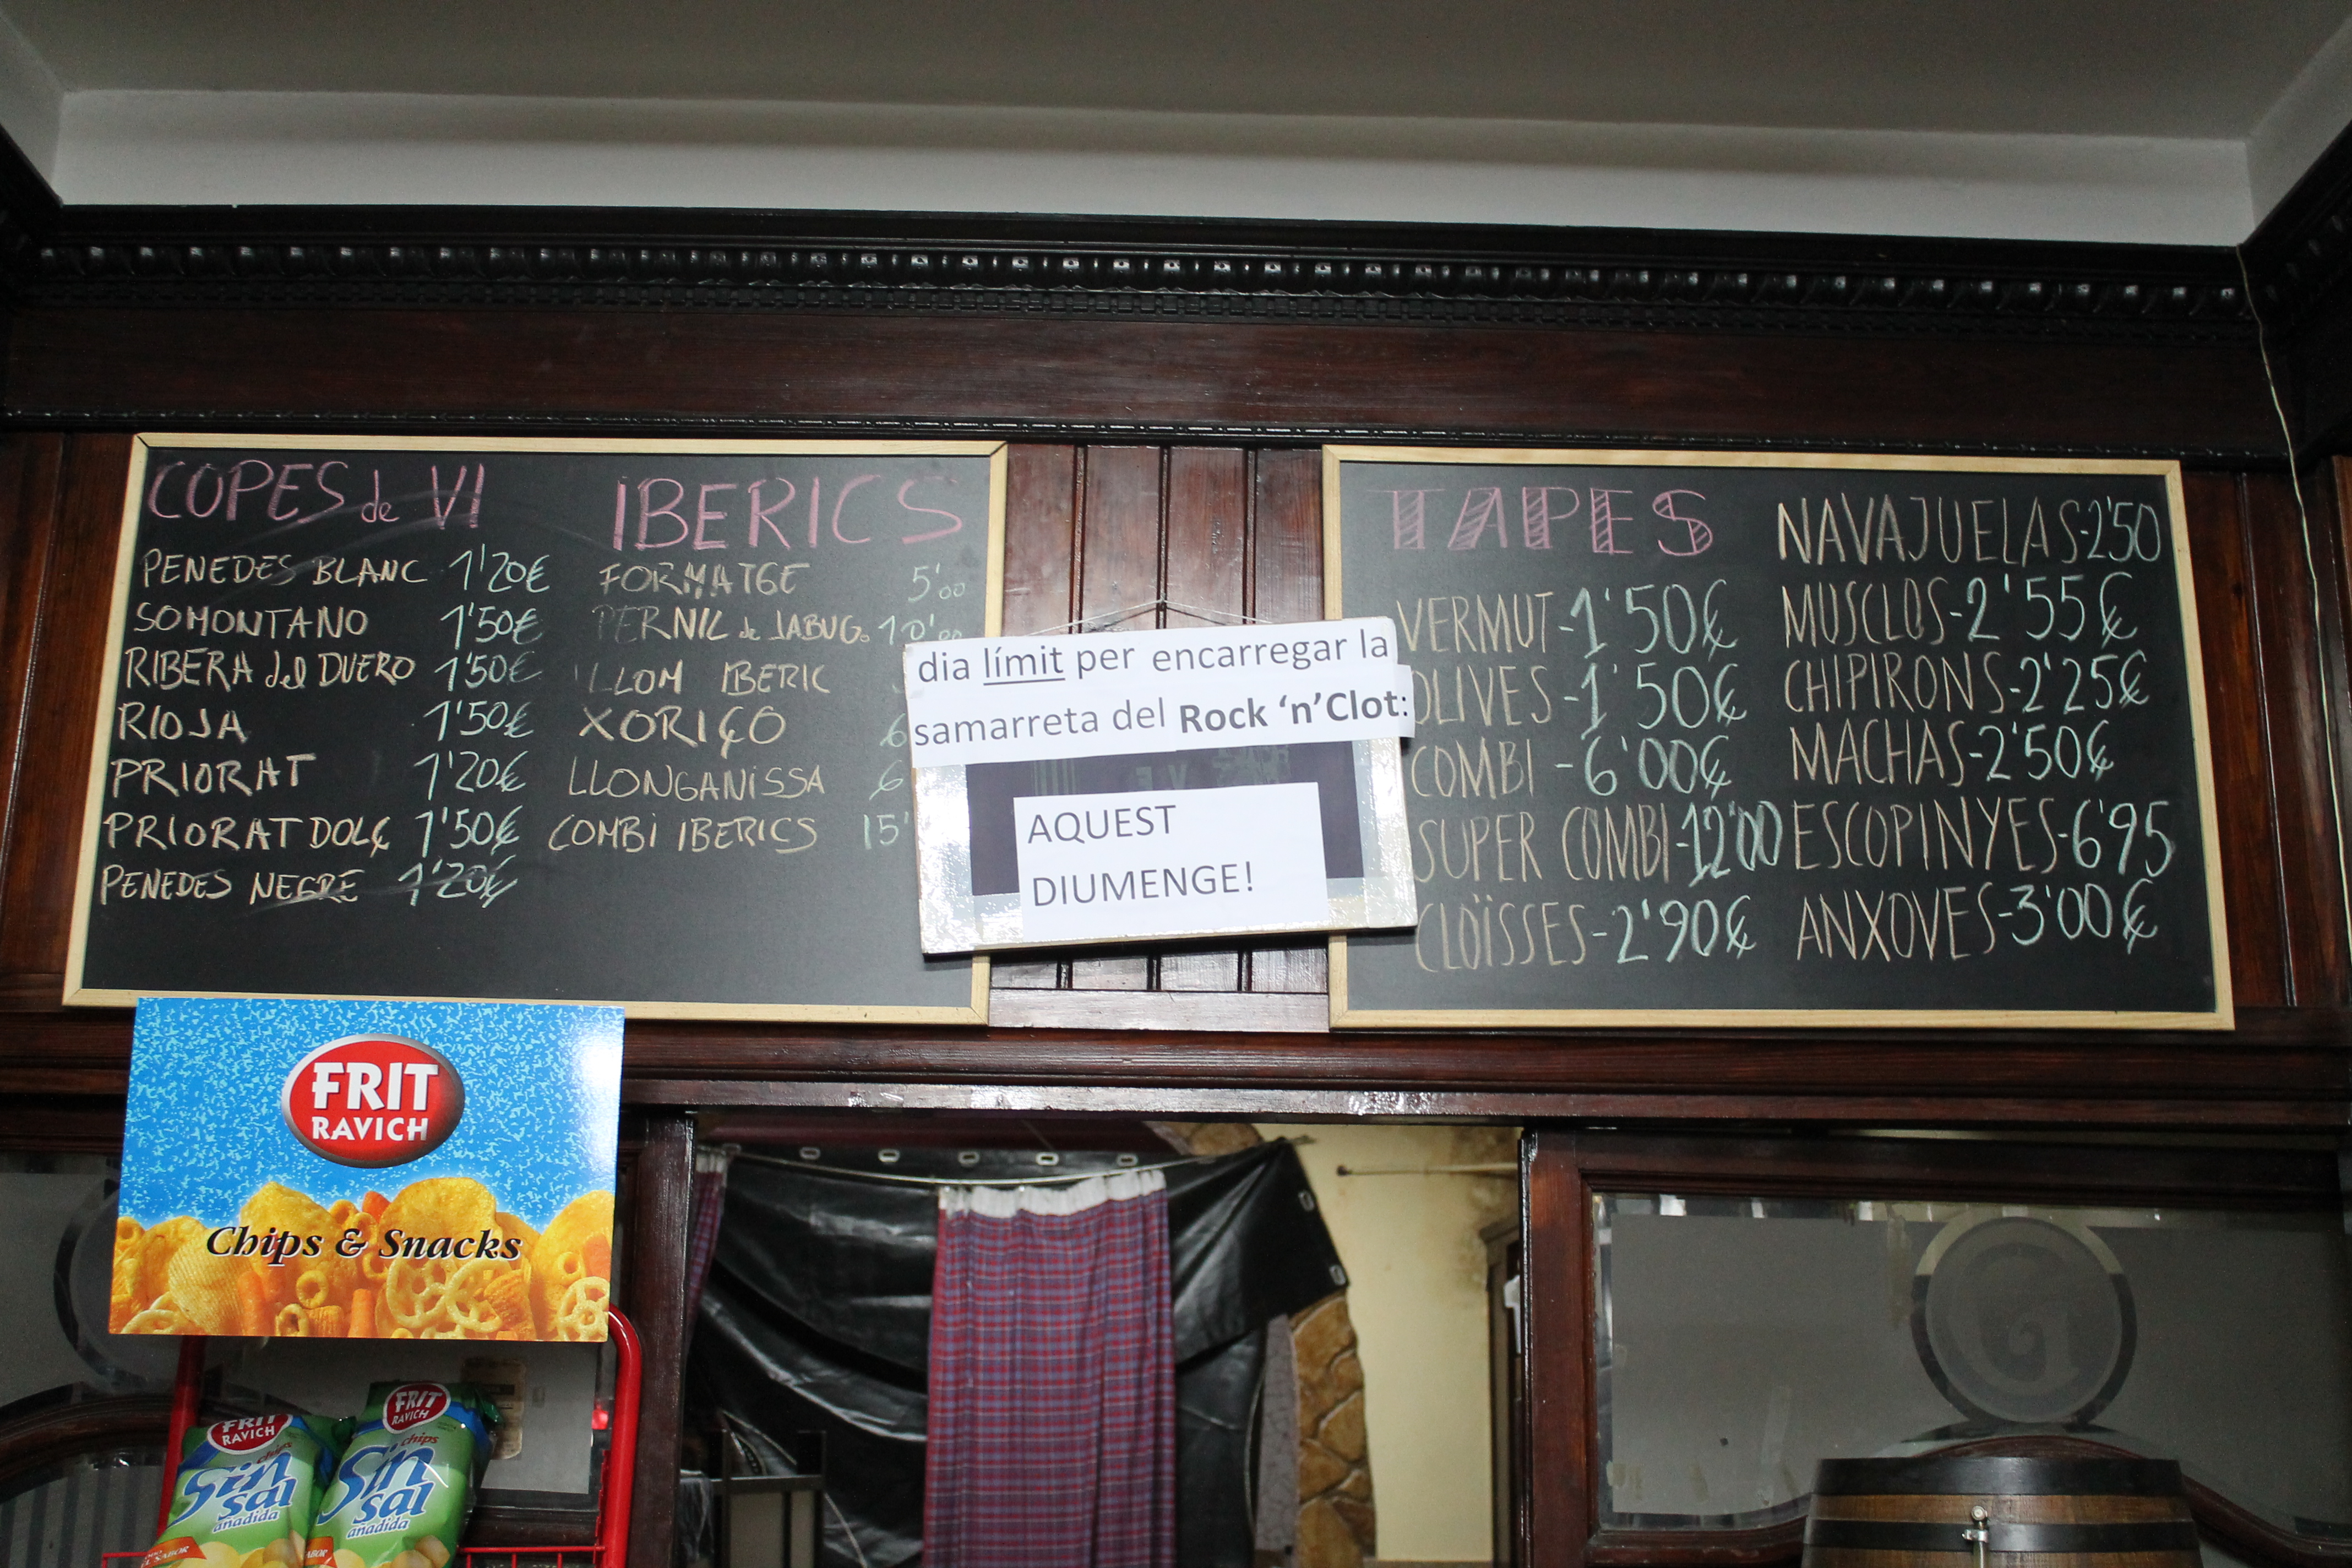 COPES de VI
PENEDES BLANC 1'20€
SOMONTANO 1'50€
RIBERA del DUERO 1'50€
RIOJA 1'50€
PRIORAT 1'20€
PRIORAT DOLÇ 1'50€
PENEDES NEGRE 1'20€
IBERICS
FORMATGE 5'00
PERNIL de JABUG. 10'00
LLOM IBERIC
XORIÇO 6
LLONGANISSA 6
COMBI IBERICS 15'
dia límit per encarregar la
samarreta del Rock 'n'Clot:
AQUEST
DIUMENGE!
TAPES
VERMUT-1'50€
OLIVES-1'50€
COMBI -6'00€
SUPER COMBI-12'00
CLOÏSSES-2'90€
NAVAJUELAS-2'50
MUSCLOS-2'55€
CHIPIRONS-2'25€
MACHAS-2'50€
ESCOPINYES-6'95
ANXOVES-3'00€
FRIT
RAVICH
Chips & Snacks
FRIT
RAVICH
chips
Sin
sal
añadida
FRIT
RAVICH
chips
Sin
sal
añadida